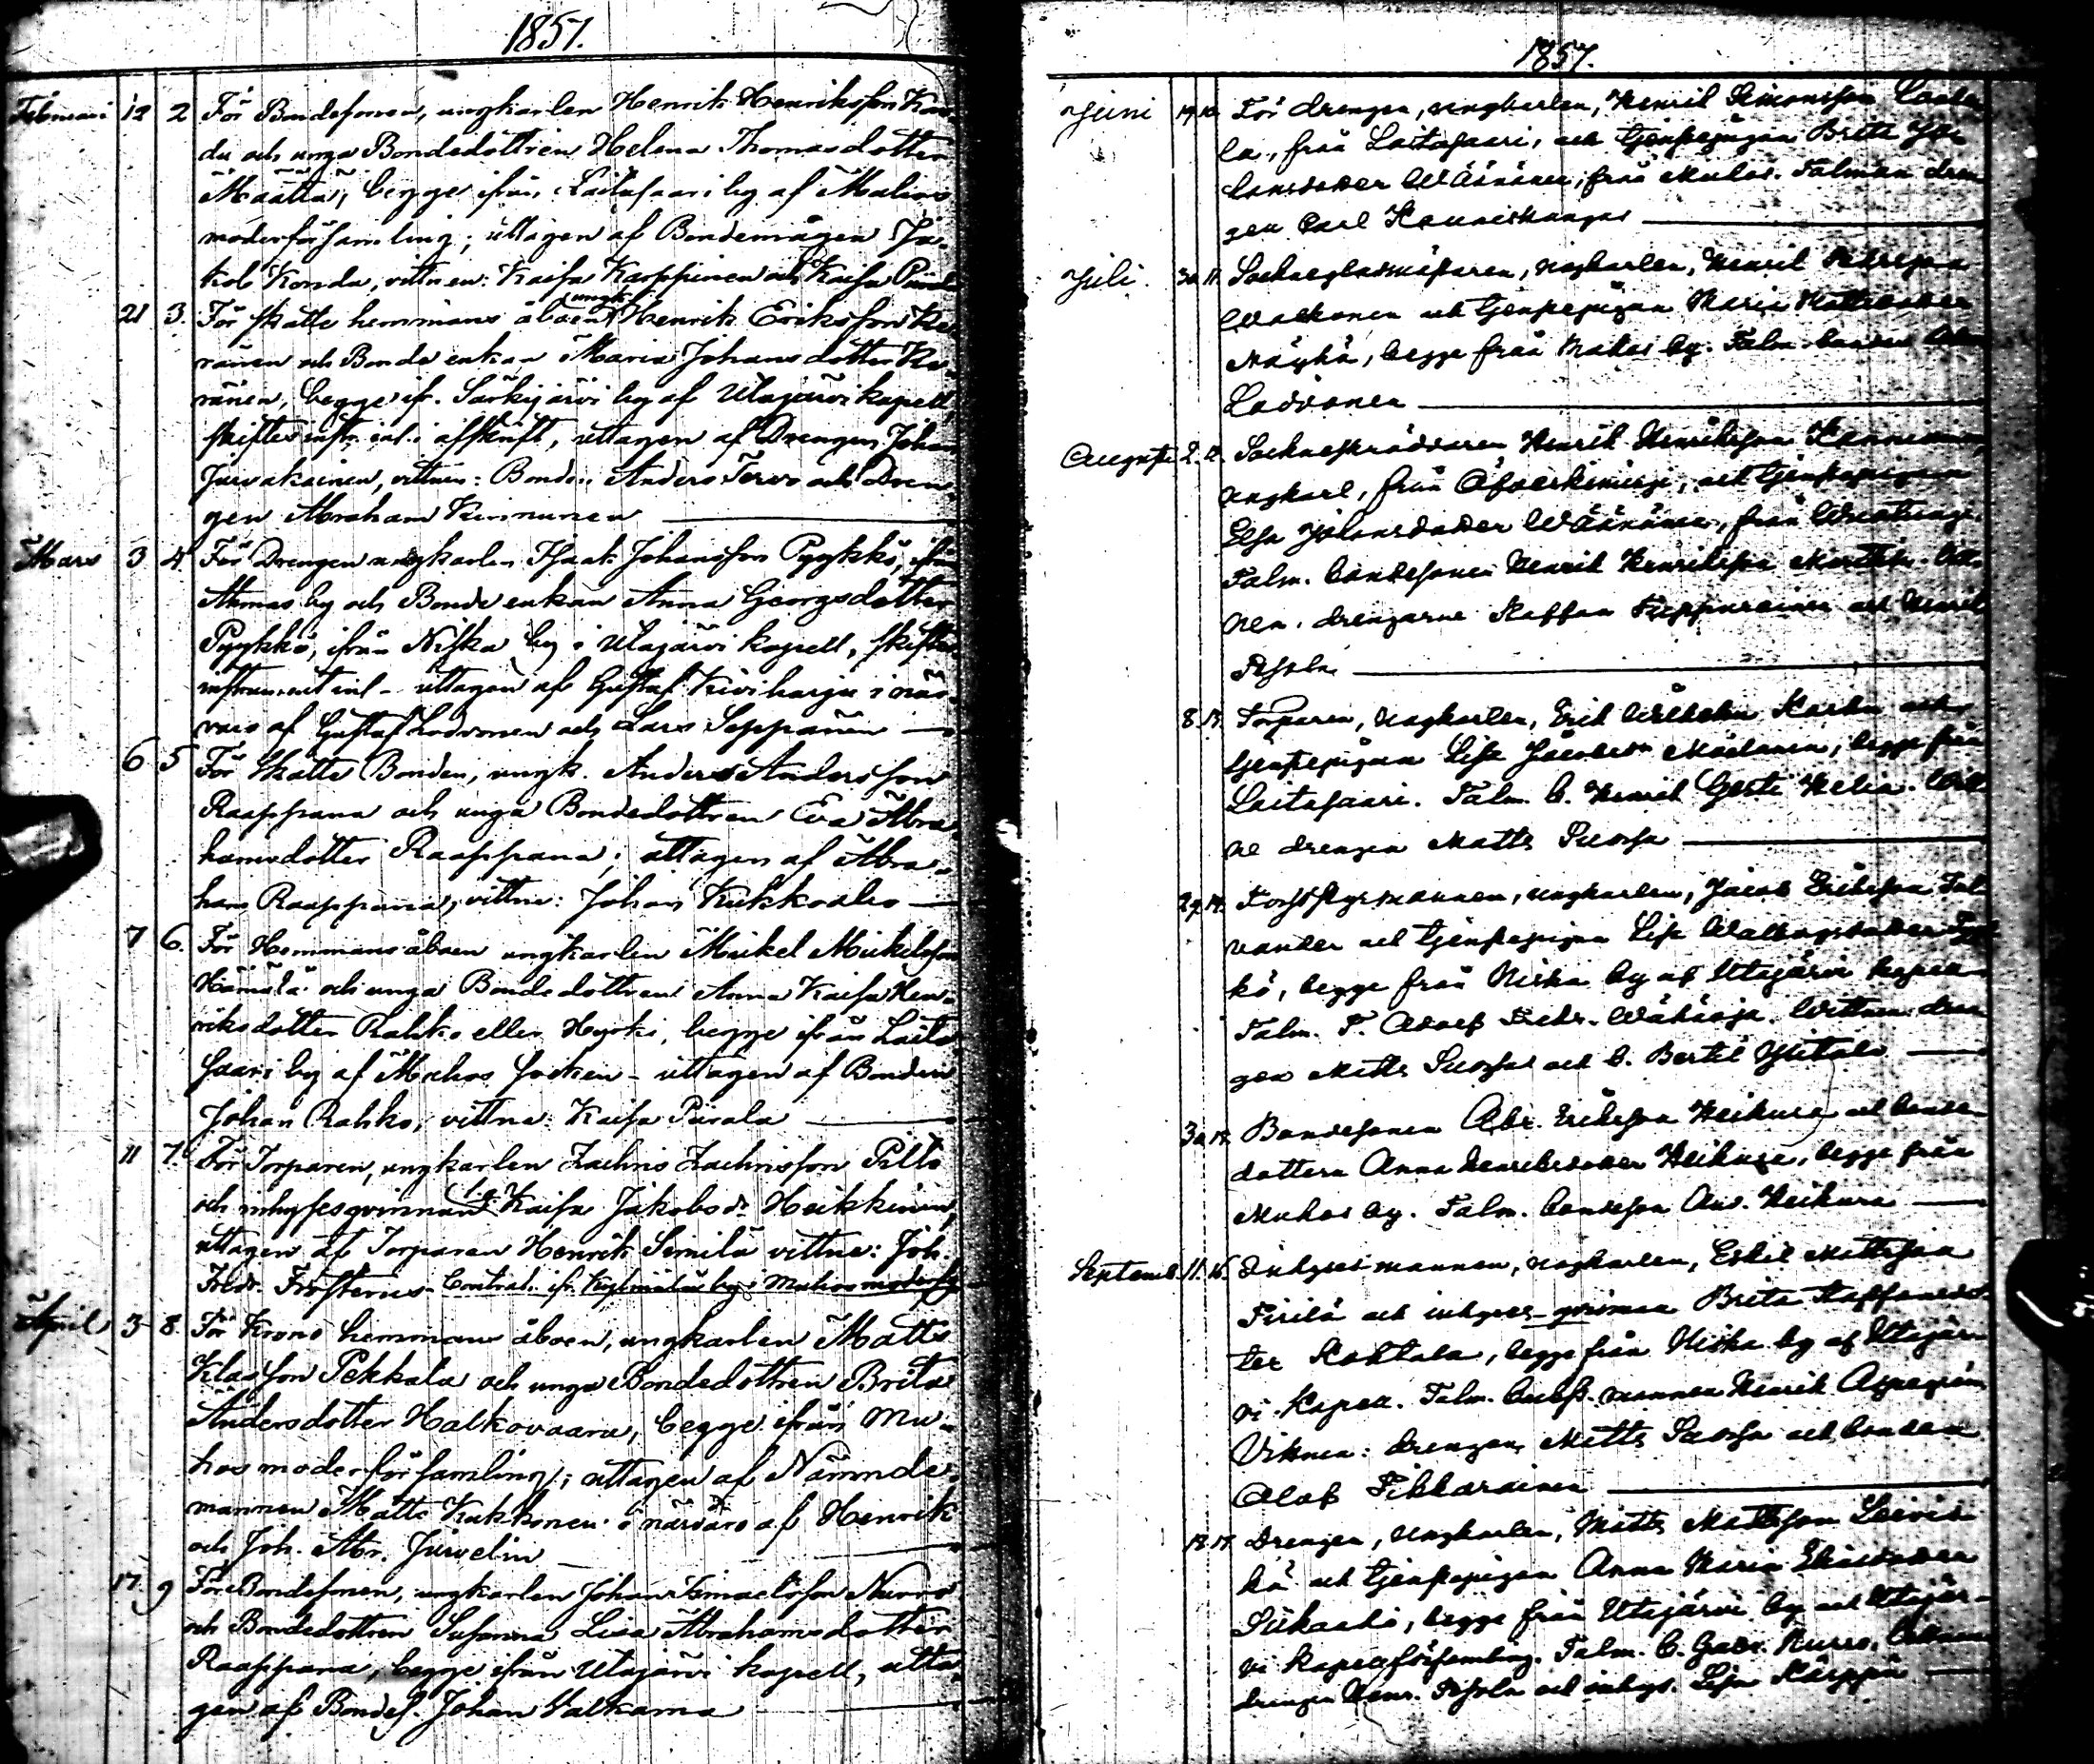 1857.
Februari 12 2 För Bondesonen, ungkarlen Henrik Henriksson Kon-
da och unga Bondedottren Helena Thomasdotter
Määttä, begge ifrån Laitasaari by af Muhos
moderförsamling; uttagen af Bondemågen Ja-
kob Konda, vittnen: Kaisa Karppinen och Kaisa
21 3. För skatte hemmans åboen ungk. Henrik Eriksson Ke-
ränen och Bonde enkan Maria Johansdotter Ke-
ränen, begge ifr. Särkijärvi by af Utajärvi kapell,
skiftesinstr. inl. i afskrift, uttagen af Drengen Johan
Juvakainen, vittnen: Bonden Anders Tervo och Dren-
gen Abraham Kinnunen
Mars 3 4 För Drengen ungkarlen Isaak Johansson Pyykkö, ifrån
Ahmas by och Bonde enkan Anna Georgsdotter
Pyykkö, ifrån Niska by i Utajärvi kapell, skiftes
instrument inl. uttagen af Gustaf Kiviharju i när-
varo af Gustaf Lodvonen och Lars Seppänen
6 5 För Skatte Bonden, ungk. Anders Andersson
Raappana och unga Bondedottren Eva Abra-
hamsdotter Raappana; uttagen af Abra-
ham Raappana, vittne: Johan Kukkoaho
7 6. För Hemmansåboen ungkarlen Mickel Mickelsson
Hämälä och unga Bondedottren Anna Kaisa Hen-
riksdotter Rahko eller Hyrki, begge ifrån Laita-
saari by af Muhos socken - uttagen af Bonden
Johan Rahko, vittne: Kaisa Pirala
11 7. För Torparen, ungkarlen Zachris Zachrisson Pilto
och inhysesqvinnan Kaisa Jakobsdr Heikkinen,
uttagen af Torparen Henrik Similä vittne: Joh.
Fredr. Frosterus. Contrah. ifr. Kylmälä by i Muhos moderfg
April 3 8. För Krono hemmans åboen, ungkarlen Matts
Klasson Pekkala och unga Bondedottren Brita
Andersdotter Halkovaara, begge ifrån Mu-
hos moderförsamling; uttagen af Nämnde-
mannen Matts Kukkonen i närvaro af Henrik
och Joh. Abr. Jurvelin
17. 9 För Bondesonen, ungkarlen Johan Ismaelsson Nurro
och Bondedottren Susanna Lisa Abrahamsdotter
Raappana, begge ifrån Utajärvi kapell, utta-
gen af Bondes. Johan Valkama
1857.
Juni 19. 10. För drengen, ungkarlen, Henrik Simonsson
la, från Laitasaari, och tjenstepigan Brita Jo-
hansdotter Wäänänen, från Muhos. Talman dren-
gen Carl Kauniskangas
Juli. 30. 11. Sockneglasmästaren, ungkarlen, Henrik
Walkonen och tjenstepigan Maria Mattsdotter
Mäyhä, begge från Muhos by. Talm. bonden
Lodvonen
Augusti 2. 12. Sockneskräddaren Henrik Henriksson
ungkarl, från Öfverkiminge, och tjenstepigan
Elsa Johansdotter Wäänänen, från
Talm. bondesonen Henrik Henriksson Vitt-
nen. drengarne Staffan och Henrik
Pesola
8. 13. Torparen, ungkarlen, Erik Wilhelm Karhu och
tjenstepigan Lisa Jacobsdr Määttänen, begge från
Laitasaari. Talm. b. Henrik Gust. Helin. Vitt-
ne drengen Matts Suorsa
29. 14. Forsstyrmannen, ungkarlen, Jacob Eriksson
vander och tjenstepigan Lisa
kö, begge från Niska by af Utajärvi kapell
Talm. T. Adolf Fredr. Wähäoja. Vittnen dren-
gen Matts Suorsa och b. Bertil Ylitalo
30. 15. Bondesonen Abr. Eriksson Heikura och bonde-
dottern Anna Henriksdotter Heikura, begge från
Muhos by. Talm. bondeson And. Heikura
Septemb. 11. 16. Inhysesmannen, ungkarlen, Eskil Mattsson
Pirilä och inhyses-qvinnan Brita Staffansdot-
ter Kohtala, begge från Niska by af Utajär-
vi kapell. Talm. mannen Henrik Aspegren
Vittnen: drengen Matts Suorsa och bonden
Olof Tikkarainen
19. 17. Drengen, ungkarlen, Matts Mattsson Leivis-
kä och tjenstepigan Anna Maria
Siikaaho, begge från Utajärvi by och Utajär-
vi kapellförsamling. Talm. b. Gabr. Nurro. Vittnen
drengen Henr. Pesola och inhys. Lisa Karppi